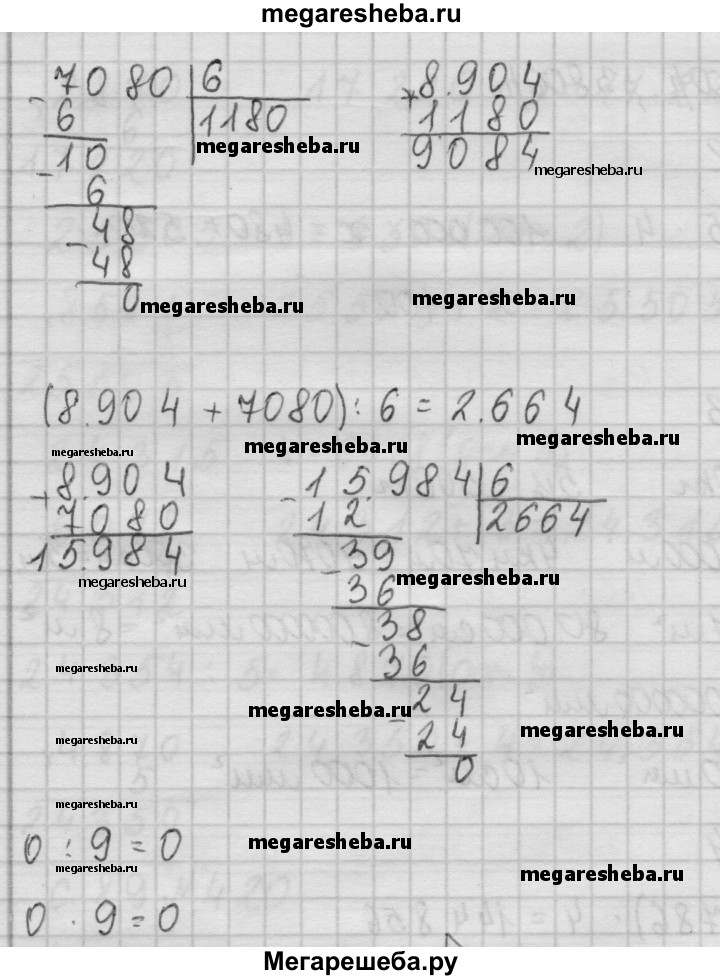 megaresheba.ru
7080 | 6
- 6 | 1180
10
- 6
48
- 48
0
megaresheba.ru
8.904
+ 1180
9084
megaresheba.ru
megaresheba.ru
megaresheba.ru
(8.904 + 7080) : 6 = 2.664
megaresheba.ru
megaresheba.ru
megaresheba.ru
+ 8.904
7080
15.984
megaresheba.ru
- 15.984 | 6
12 | 2664
39
- 36
38
- 36
24
- 24
0
megaresheba.ru
megaresheba.ru
megaresheba.ru
megaresheba.ru
megaresheba.ru
megaresheba.ru
0 : 9 = 0
megaresheba.ru
megaresheba.ru
megaresheba.ru
0 · 9 = 0
Мегарешеба.ру